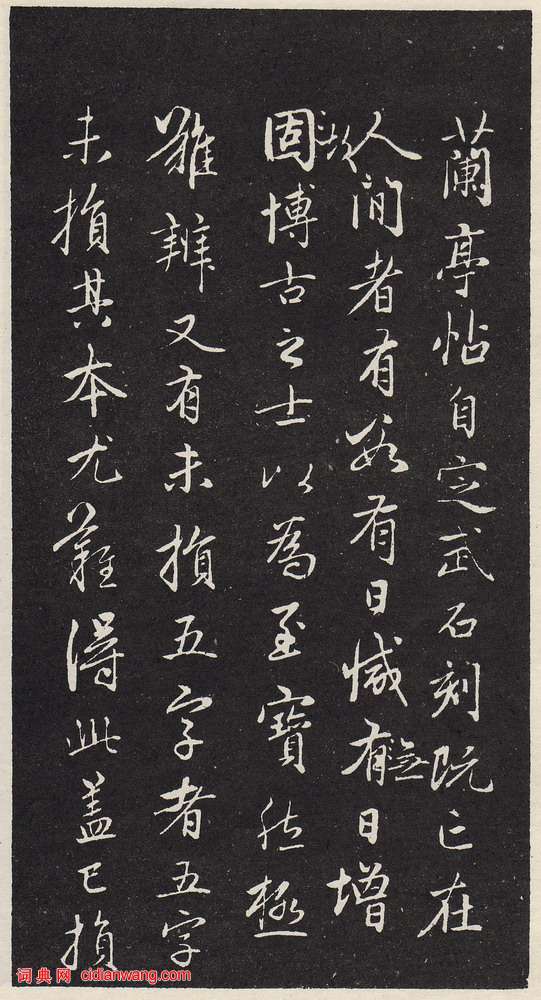 蘭亭帖自定武石刻既亡在
人間者有數有日減有無日增
固故博古之士以為至寶然極
難辨又有未損五字者五字
未損其本尤難得此蓋已損
词典网 cidianwang.com